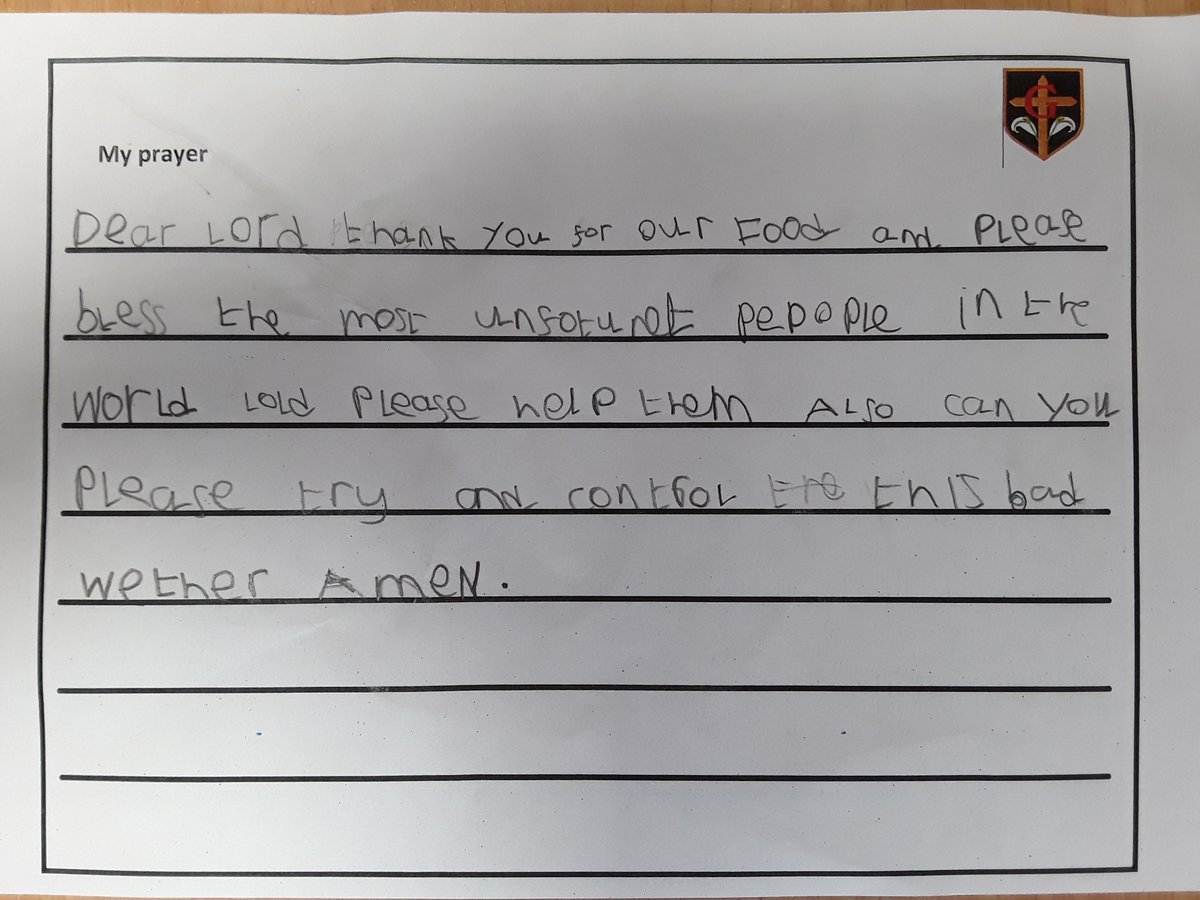 My prayer
G
Dear Lord thank you for our Food and Please
bless the most unsotunet pepople in the
world Lold Please help them ALSO can you
Please try and control the this bad
wether AmeN.